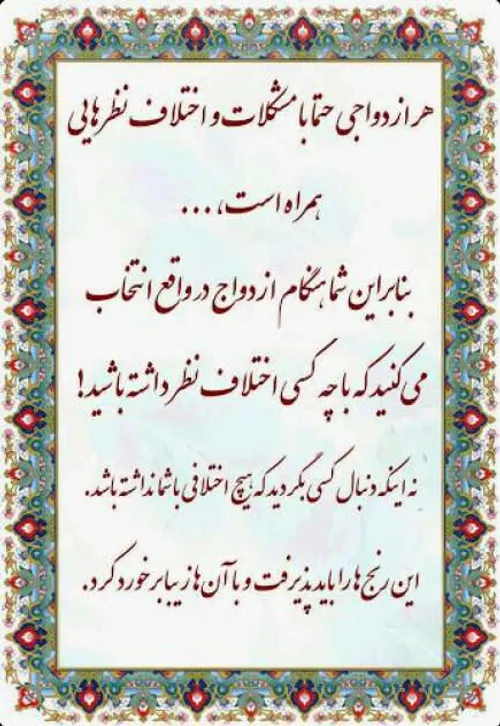 هر ازدواجی حتما با مشکلات و اختلاف نظرهایی
همراه است، ...
بنابراین شما هنگام ازدواج در واقع انتخاب
می کنید که با چه کسی اختلاف نظر داشته باشید!
نه اینکه دنبال کسی بگردید که هیچ اختلافی با شما نداشته باشد.
این رنج ها را باید پذیرفت و با آن ها زیبا برخورد کرد.